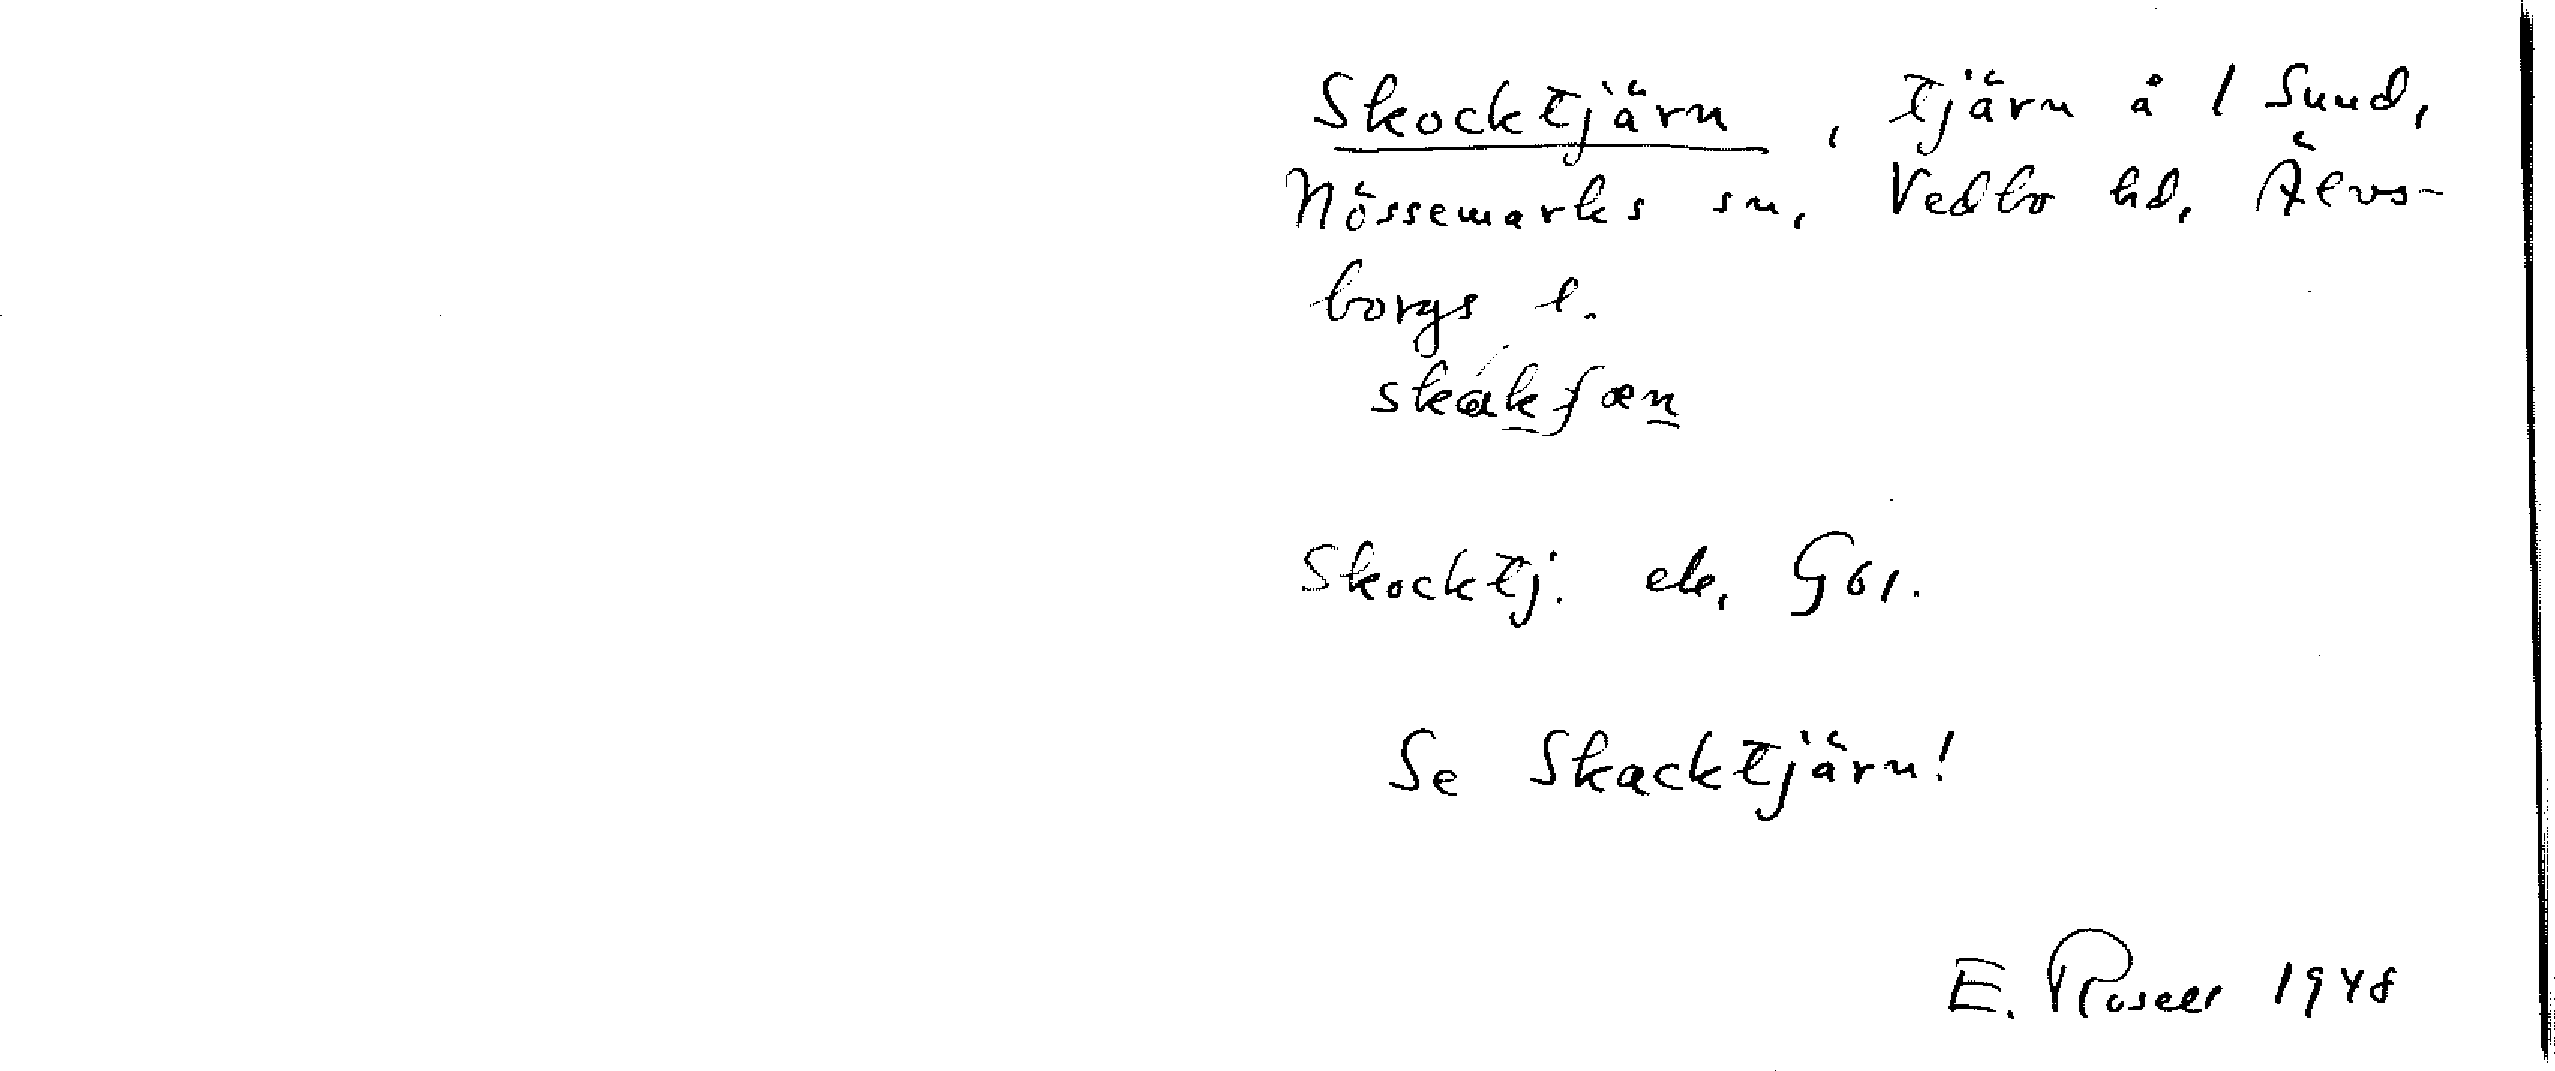 Skocktjärn, tjärn å 1 Sund,
Nössemarks sn, Vedbo hd, Älvs-
borgs l.
Skocktj. ek, G61.
Se Skacktjärn!
E. Rosell 1948